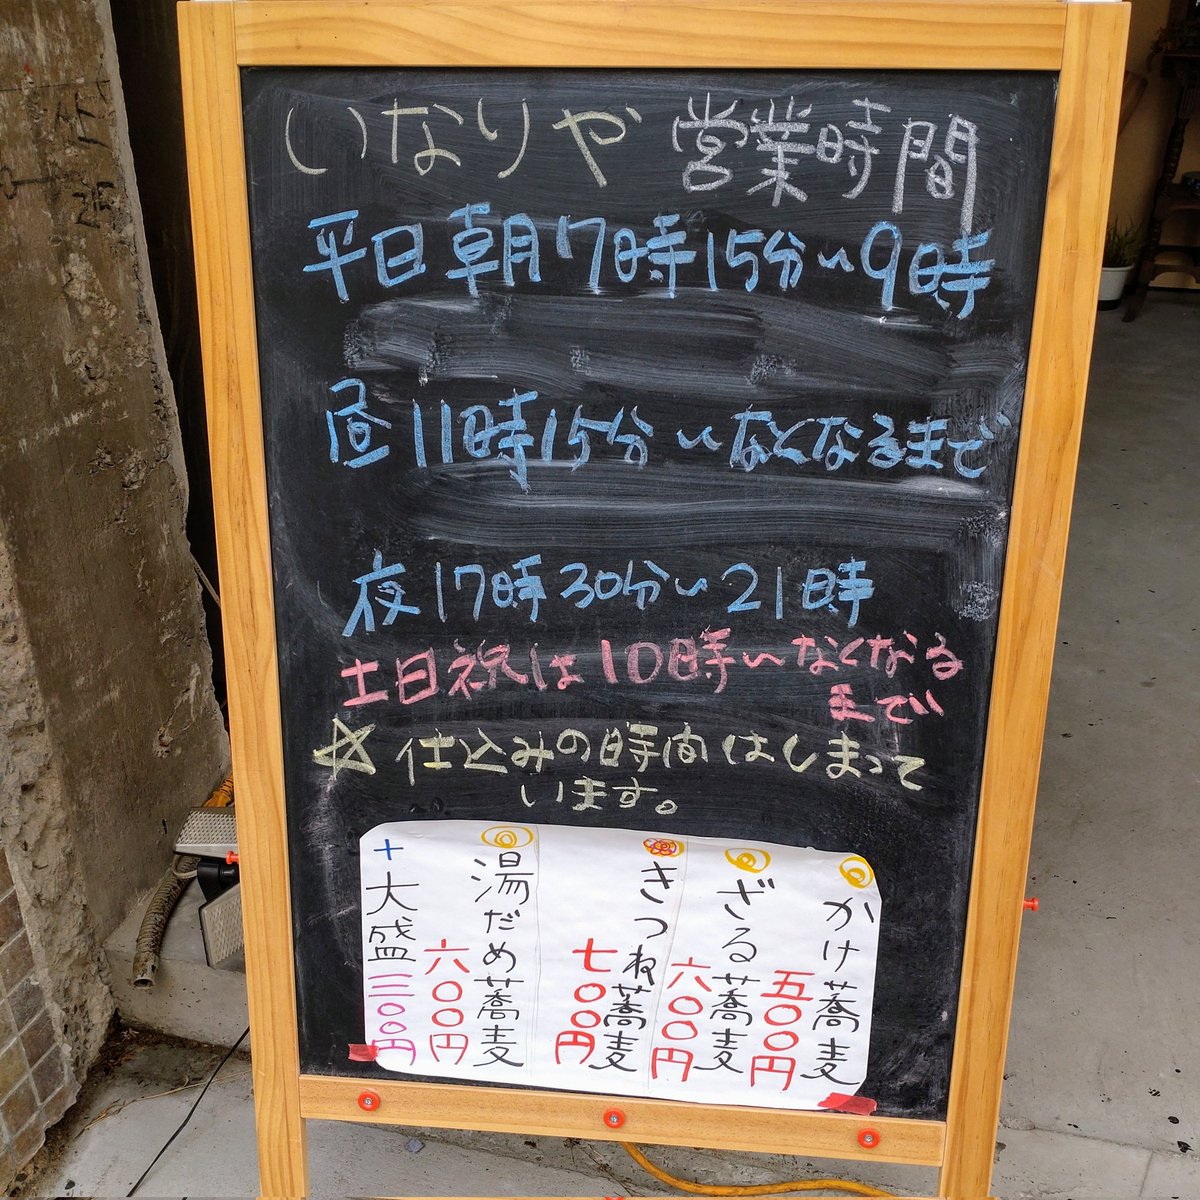 いなりや 営業時間
平日 朝7時15分〜9時
昼11時15分〜なくなるまで
夜17時30分〜21時
土日祝は10時〜なくなる
まで
☆仕込みの時間はしまって
います。
かけ蕎麦
五〇〇円
ざる蕎麦
六〇〇円
きつね蕎麦
七〇〇円
湯だめ蕎麦
六〇〇円
+大盛三〇〇円